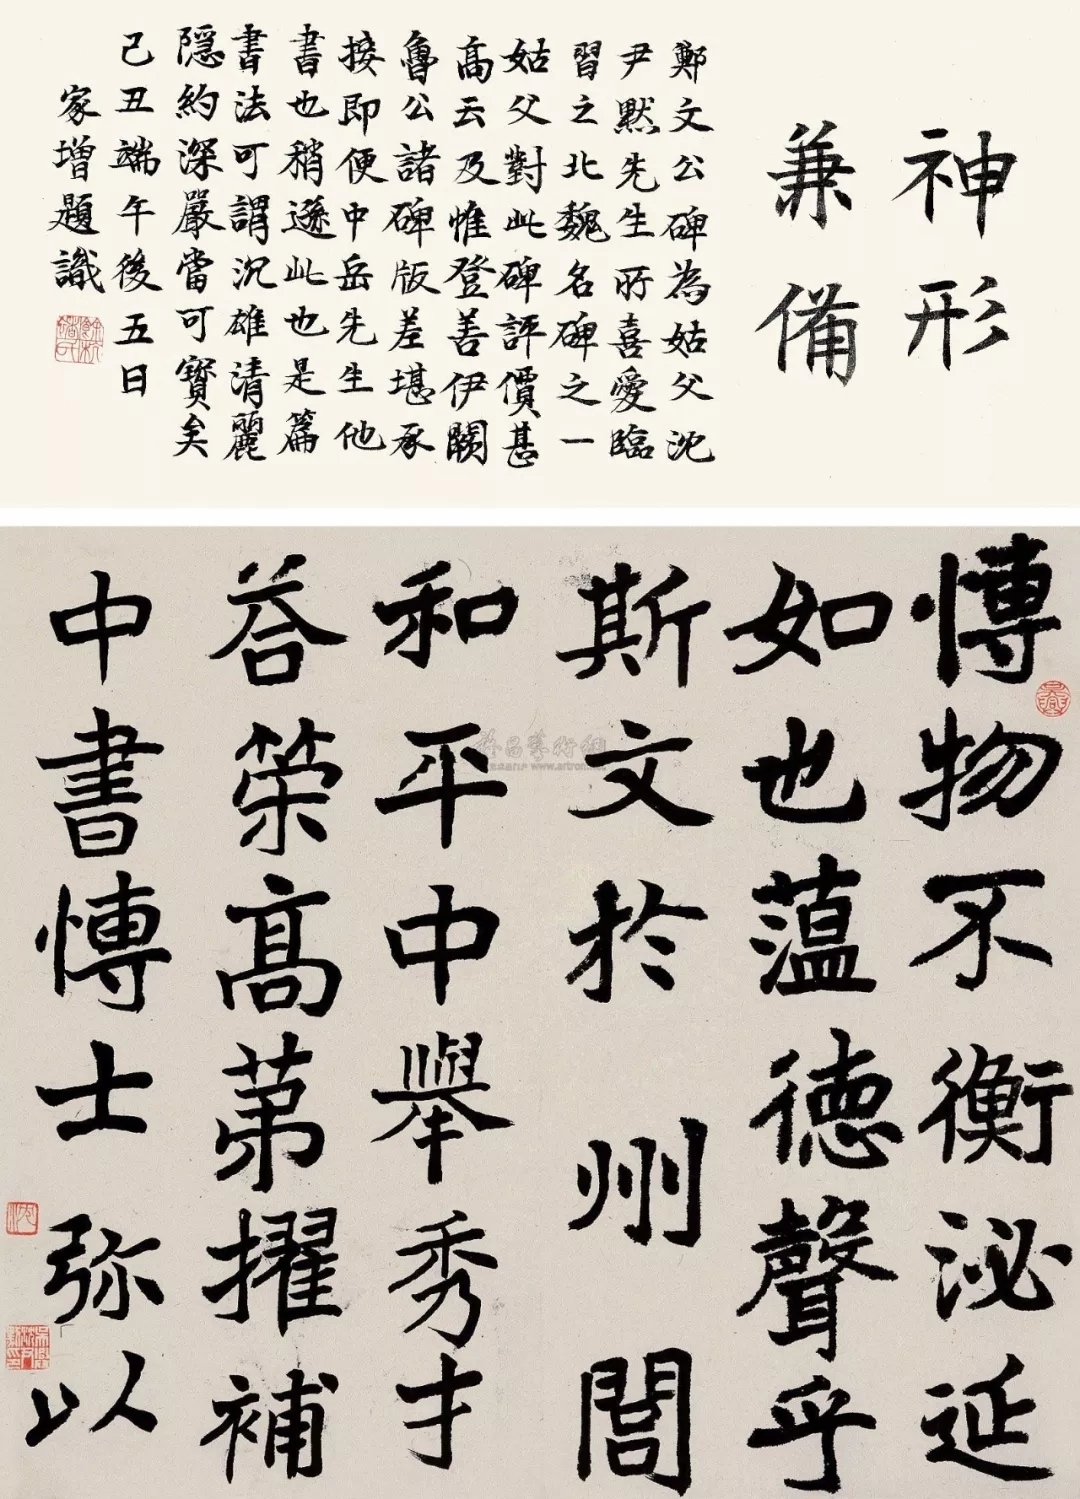 神形
兼備
鄭文公碑為姑父沈
尹默先生所喜愛臨
習之北魏名碑之一
姑父對此碑評價甚
高云及惟登善伊闕
魯公諸碑版差堪承
接即便中岳先生他
書也稍遜此也是篇
書法可謂沉雄清麗
隱約深嚴當可寶矣
己丑端午後五日
家增題識
博物不衡泌延
如也薀德聲乎
斯文於州閭
和平中舉秀才
荅榮高苐擢補
中書博士弥以
www.artron.net